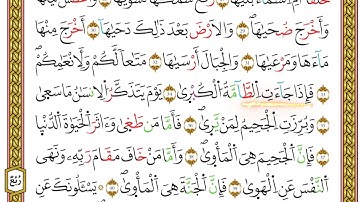 وَأَخْرَجَ ضُحَىٰهَا ٢٩ وَالْأَرْضَ بَعْدَ ذَٰلِكَ دَحَىٰهَا ٣٠ أَخْرَجَ مِنْهَا
مَآءَهَا وَمَرْعَىٰهَا ٣١ وَالْجِبَالَ أَرْسَىٰهَا ٣٢ مَتَاعًا لَّكُمْ وَلِأَنْعَامِكُمْ ٣٣
فَإِذَا جَآءَتِ الطَّآمَّةُ الْكُبْرَىٰ ٣٤ يَوْمَ يَتَذَكَّرُ الْإِنسَانُ مَا سَعَىٰ ٣٥
وَبُرِّزَتِ الْجَحِيمُ لِمَن يَرَىٰ ٣٦ فَأَمَّا مَن طَغَىٰ ٣٧ وَءَاثَرَ الْحَيَوٰةَ الدُّنْيَا ٣٨
فَإِنَّ الْجَحِيمَ هِىَ الْمَأْوَىٰ ٣٩ وَأَمَّا مَنْ خَافَ مَقَامَ رَبِّهِۦ وَنَهَى
النَّفْسَ عَنِ الْهَوَىٰ ٤٠ فَإِنَّ الْجَنَّةَ هِىَ الْمَأْوَىٰ ٤١ يَسْـَٔلُونَكَ عَنِ
رُبْع